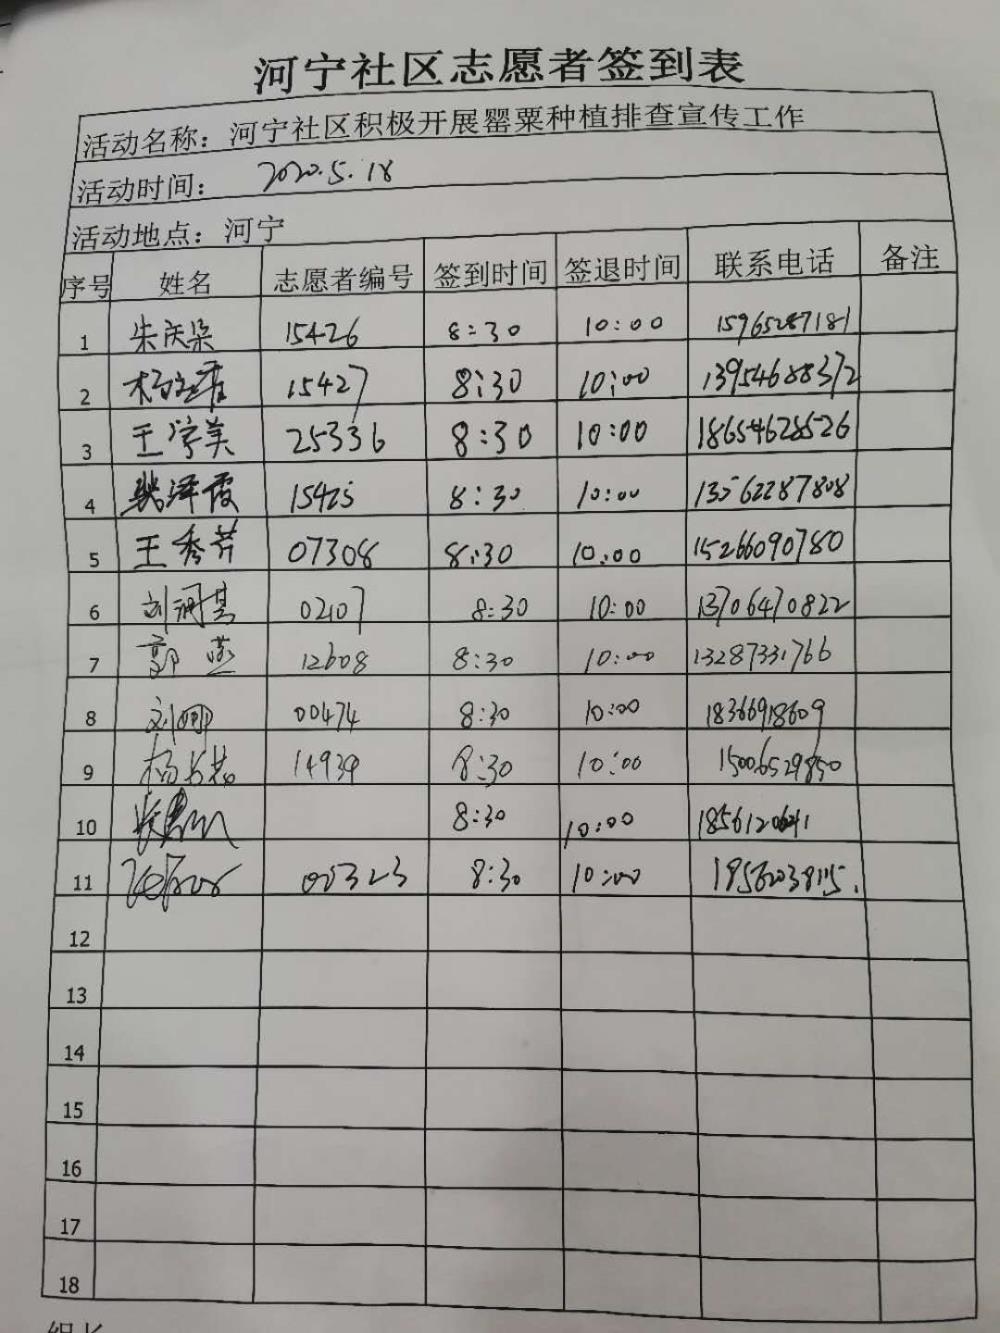 河宁社区志愿者签到表
活动名称：河宁社区积极开展罂粟种植排查宣传工作
活动时间： 2020.5.18
活动地点：河宁
序号 姓名 志愿者编号 签到时间 签退时间 联系电话 备注
1 朱庆梁 15426 8:30 10:00 15965287181
2 15427 8:30 10:00 13954688372
3 王学美 25336 8:30 10:00 18654628526
4 张泽霞 15425 8:30 10:00 13562287808
5 王秀芹 07308 8:30 10:00 15266090780
6 刘润其 02107 8:30 10:00 13706470822
7 郭燕 12608 8:30 10:00 13287331766
8 刘娜 00474 8:30 10:00 18366918609
9 14939 8:30 10:00 15006529850
10 8:30 10:00
11 00323 8:30 10:00
12
13
14
15
16
17
18
组长